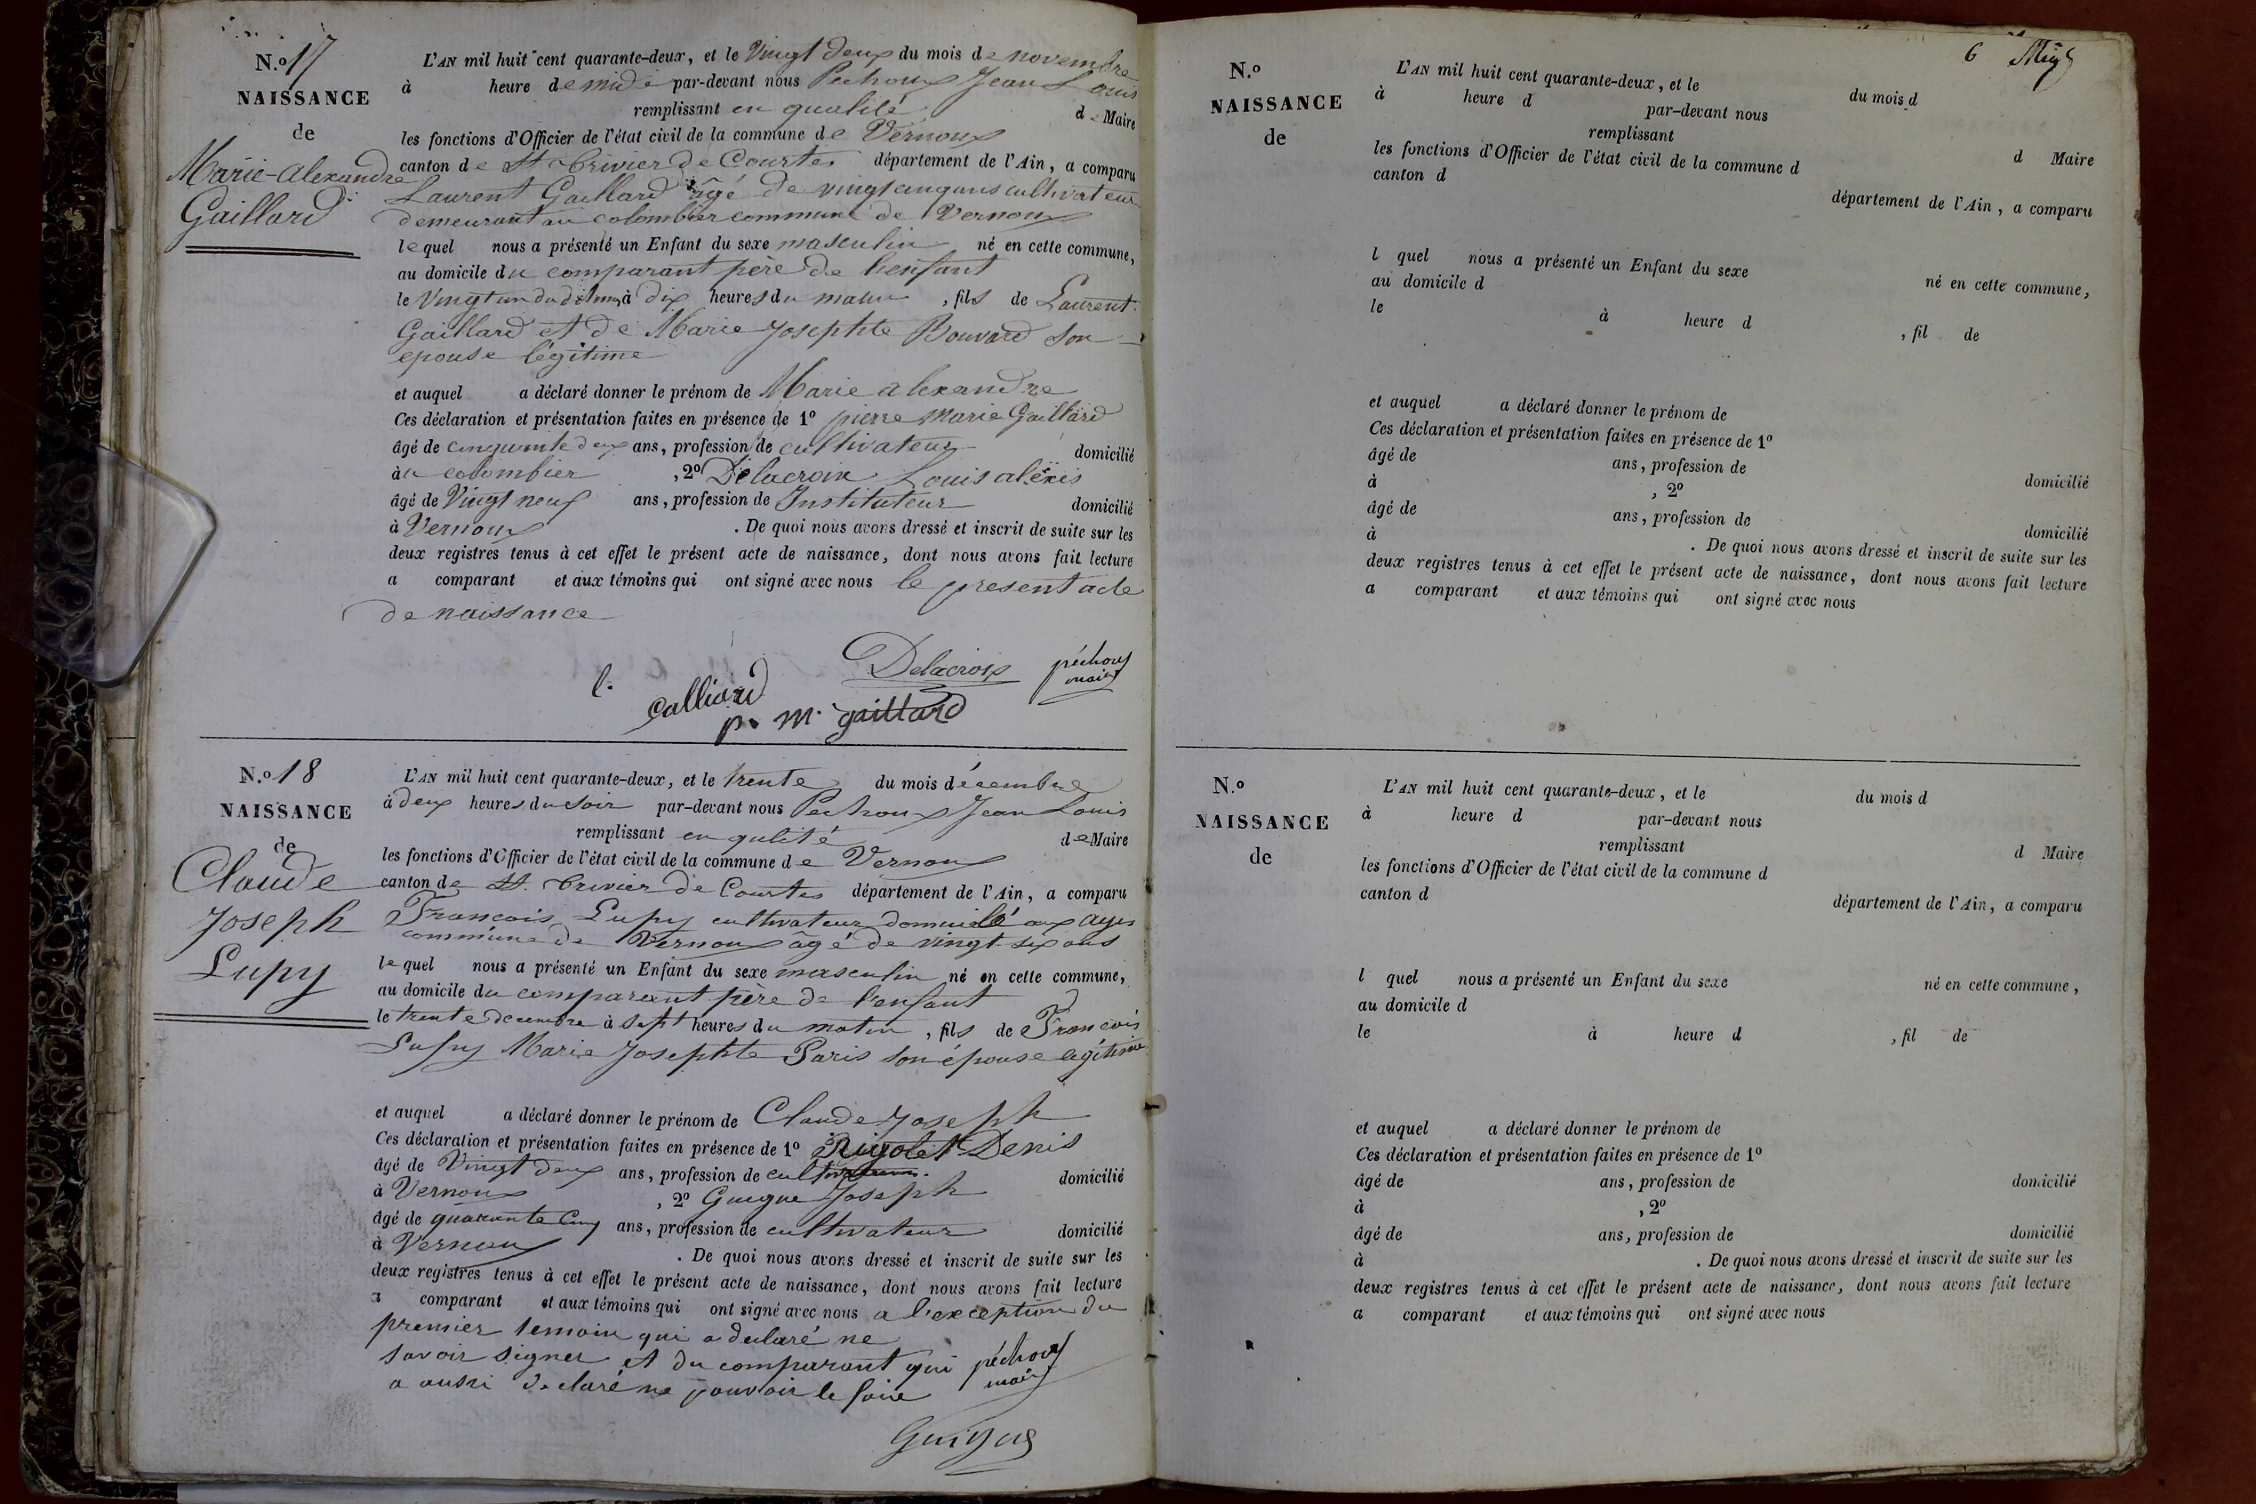 N.º 17
NAISSANCE
de
Marie-alexandre
Gaillard
L'AN mil huit cent quarante-deux, et le Vingt deux du mois de novembre
à heure de midi par-devant nous Pechoux Jean Louis
remplissant en qualité de Maire
les fonctions d'Officier de l'état civil de la commune de Vernoux
canton de St trivier de Courtes département de l'Ain, a comparu
Laurent Gaillard âgé de vingt cinq ans cultivateur
demeurant au colombier commune de Vernoux
lequel nous a présenté un Enfant du sexe masculin né en cette commune,
au domicile du comparant père de l'enfant
le Vingt un du dit mois à dix heures du matin, fils de Laurent
Gaillard et de Marie Josephte Bouvard son
epouse légitime
et auquel a déclaré donner le prénom de Marie alexandre
Ces déclaration et présentation faites en présence de 1º pierre marie Gaillard
âgé de cinquante deux ans, profession de cultivateur domicilié
au colombier, 2º Delacroix Louis alexis
âgé de Vingt neuf ans, profession de Instituteur domicilié
à Vernoux. De quoi nous avons dressé et inscrit de suite sur les
deux registres tenus à cet effet le présent acte de naissance, dont nous avons fait lecture
a comparant et aux témoins qui ont signé avec nous le present acte
de naissance
l. Galliard
Delacroix
péchoux
maire
p. m. gaillard
N.º 18
NAISSANCE
de
Claude
Joseph
Lupy
L'AN mil huit cent quarante-deux, et le trente du mois décembre
à deux heures du soir par-devant nous Pechoux Jean Louis
remplissant en qulité de Maire
les fonctions d'Officier de l'état civil de la commune de Vernoux
canton de St. trivier de Courtes département de l'Ain, a comparu
Francois Lupy cultivateur domicilié aux ayes
commune de Vernoux âgé de vingt six ans
lequel nous a présenté un Enfant du sexe masculin né en cette commune,
au domicile du comparant père de l'enfant
le trente decembre à sept heures du matin, fils de Francois
Lupy Marie Josephte Paris son épouse legitime
et auquel a déclaré donner le prénom de Claude Joseph
Ces déclaration et présentation faites en présence de 1º Rigolet Denis
âgé de Vingt deux ans, profession de cultivateur. domicilié
à Vernoux, 2º Guigue Joseph
âgé de quarante cinq ans, profession de cultivateur domicilié
à Vernoux. De quoi nous avons dressé et inscrit de suite sur les
deux registres tenus à cet effet le présent acte de naissance, dont nous avons fait lecture
a comparant et aux témoins qui ont signé avec nous a l'exception du
premier temoin qui a declaré ne
savoir signer et du comparant qui
a aussi declaré ne pouvoir le faire
péchoux
maire
Guigue
6
N.º
NAISSANCE
de
L'AN mil huit cent quarante-deux, et le du mois d
à heure d par-devant nous
remplissant d Maire
les fonctions d'Officier de l'état civil de la commune d
canton d département de l'Ain, a comparu
l quel nous a présenté un Enfant du sexe né en cette commune,
au domicile d
le à heure d, fil de
et auquel a déclaré donner le prénom de
Ces déclaration et présentation faites en présence de 1º
âgé de ans, profession de domicilié
à, 2º
âgé de ans, profession de domicilié
à. De quoi nous avons dressé et inscrit de suite sur les
deux registres tenus à cet effet le présent acte de naissance, dont nous avons fait lecture
a comparant et aux témoins qui ont signé avec nous
N.º
NAISSANCE
de
L'AN mil huit cent quarante-deux, et le du mois d
à heure d par-devant nous
remplissant d Maire
les fonctions d'Officier de l'état civil de la commune d
canton d département de l'Ain, a comparu
l quel nous a présenté un Enfant du sexe né en cette commune,
au domicile d
le à heure d, fil de
et auquel a déclaré donner le prénom de
Ces déclaration et présentation faites en présence de 1º
âgé de ans, profession de domicilié
à, 2º
âgé de ans, profession de domicilié
à. De quoi nous avons dressé et inscrit de suite sur les
deux registres tenus à cet effet le présent acte de naissance, dont nous avons fait lecture
a comparant et aux témoins qui ont signé avec nous